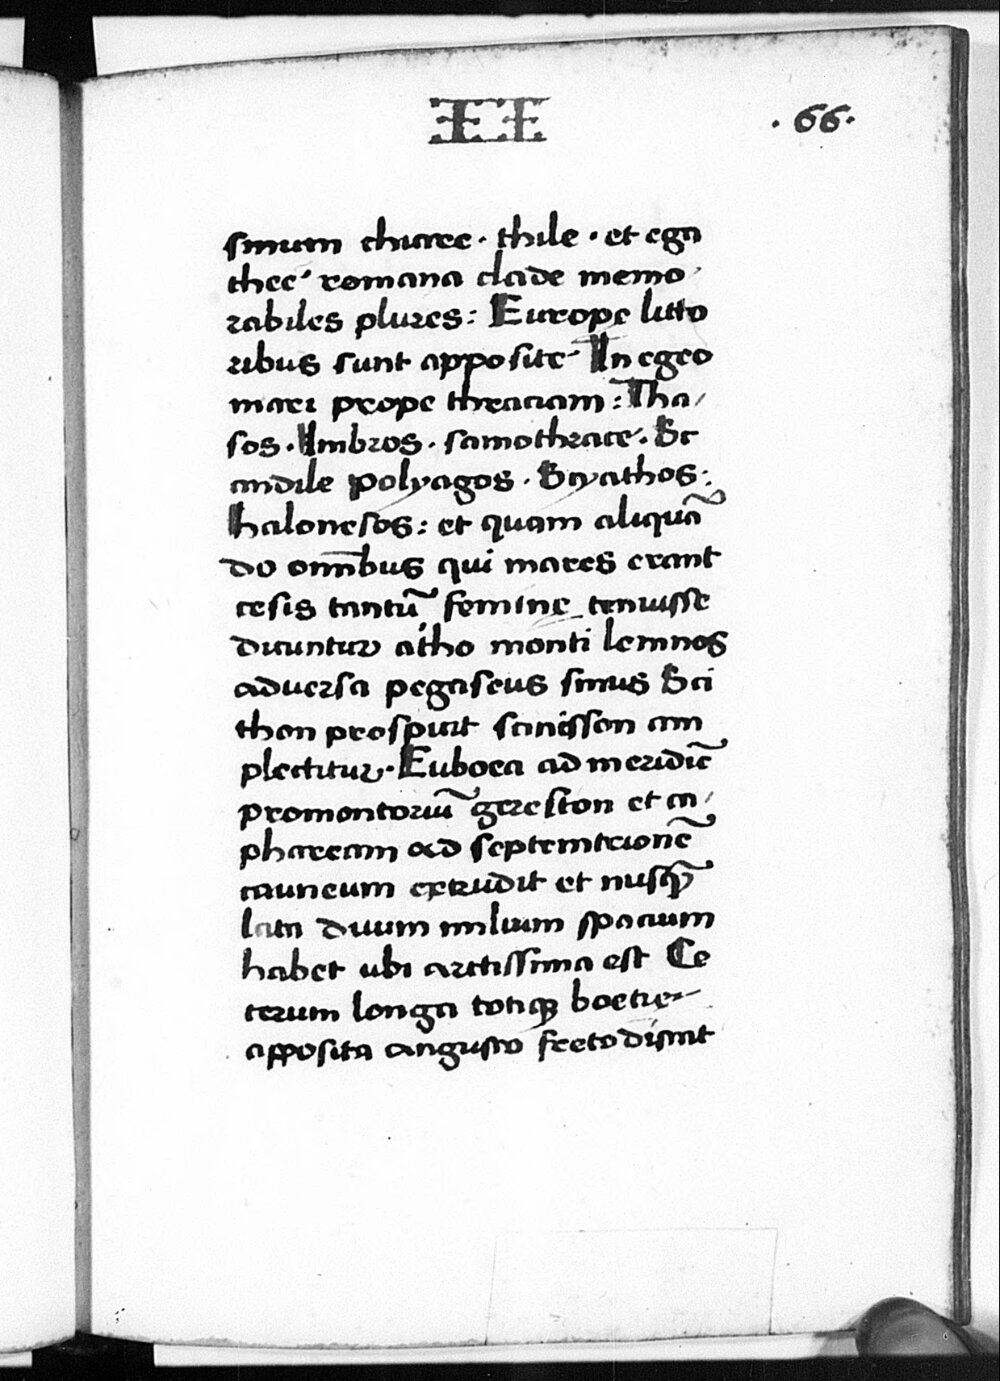 II
.66.
sinum chiaree · thile · et ega
thee romana clade memo
rabiles plures: Europe litto
ribus sunt apposite In egeo
mari prope thraciam: Tha/
sos · Imbros · samothrace · Sc
andile polyagos · Scyathos:
halonesos: et quam aliquā
do omībus qui mares erant
cesis tantū femine tenuisse
dicuntur atho monti lemnos
adversa pegaseus sinus Sci
thon prospicit
plectitur · Euboea ad meridiē
promontoriū gereston et ca/
phaream ad septemtrionē
cauneum extrudit et nusq̄
lata duum milium spacium
habet ubi arctissima est Ce
terum longa totiq boetie
apposita angusto freto distat